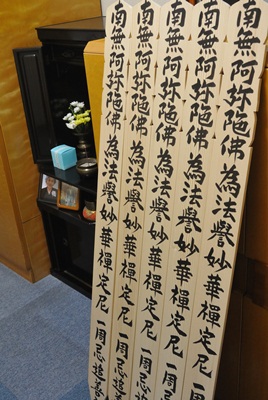 南無阿弥陀佛為法譽妙華禪定尼 一周
南無阿弥陀佛為法譽妙華禪定尼 一周忌
南無阿弥陀佛為法譽妙華禪定尼 一周忌
南無阿弥陀佛為法譽妙華禪定尼 一周忌追
南無阿弥陀佛為法譽妙華禪定尼 一周忌追善